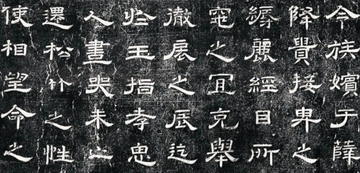 令族嬪于薛
降貴接卑之
縟麗經日所
之宜克舉
徹展之辰迄
玉指孝忠
人晝哭未亡
還松竹之性
使相望命之